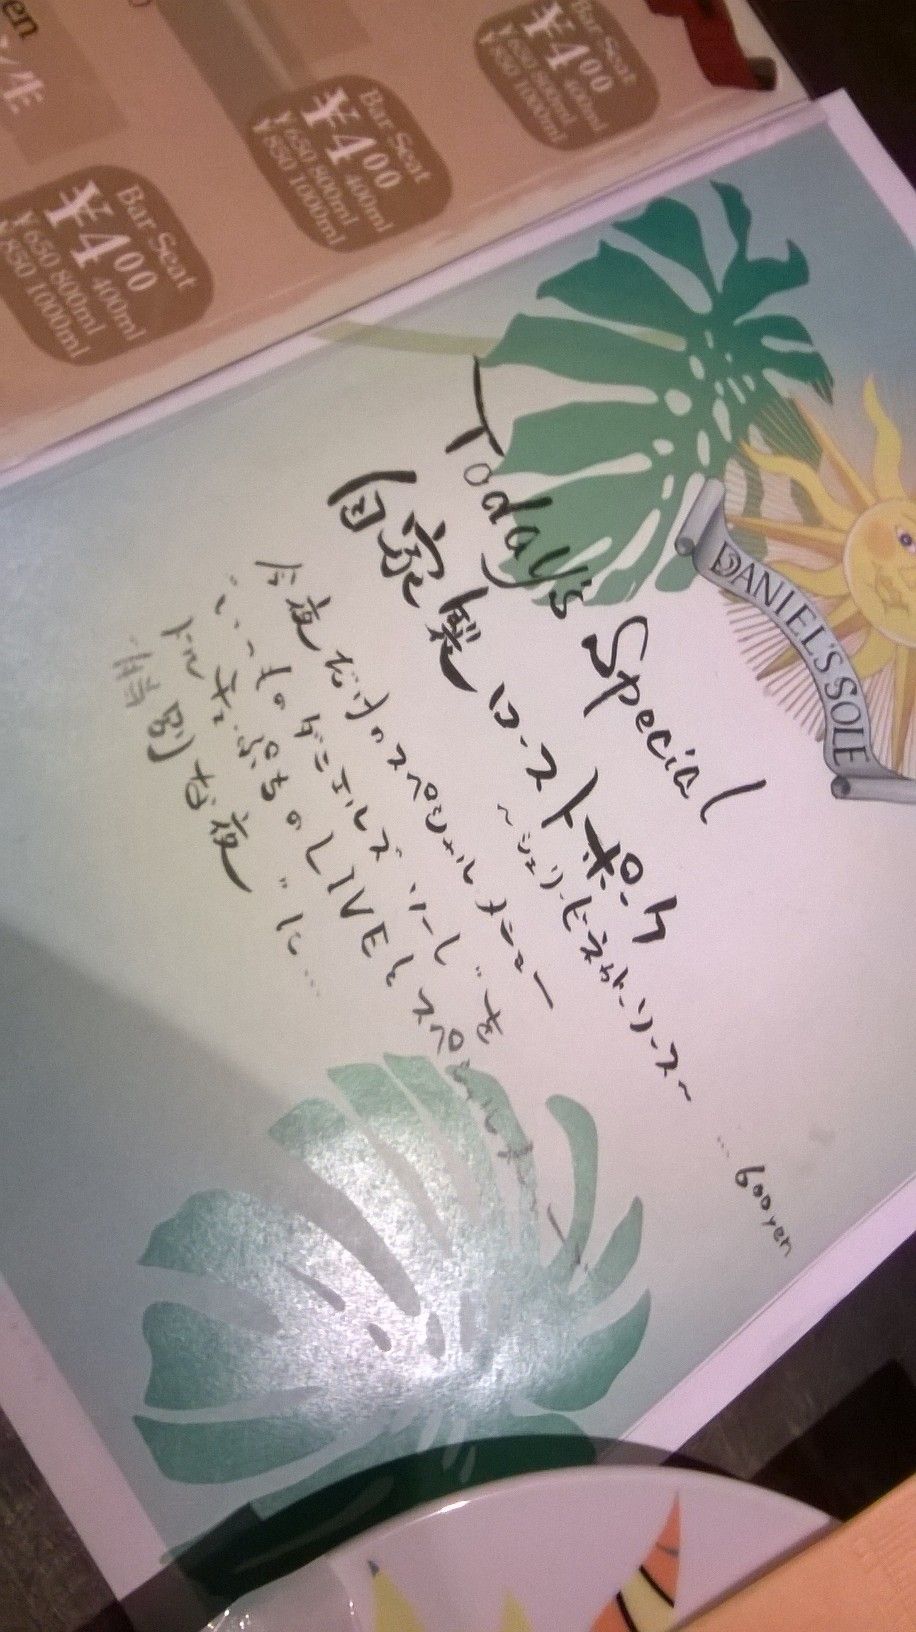 en
生
Bar-Seat
¥400 400ml
¥650 800ml
¥850 1000ml
Bar-Seat
¥400 400ml
¥650 800ml
¥850 1000ml
Bar-Seat
¥400 400ml
¥650 800ml
¥850 1000ml
DANIEL'S SOLE
Today's Special
自家製 ローストポーク
～シェリービネガーソース～
… 600yen
今夜だけのスペシャルメニュー
"いつものダニエルズソーレ"を
ドルチェぷちのLIVEとスペシャルメニューで
"特別な夜"に…